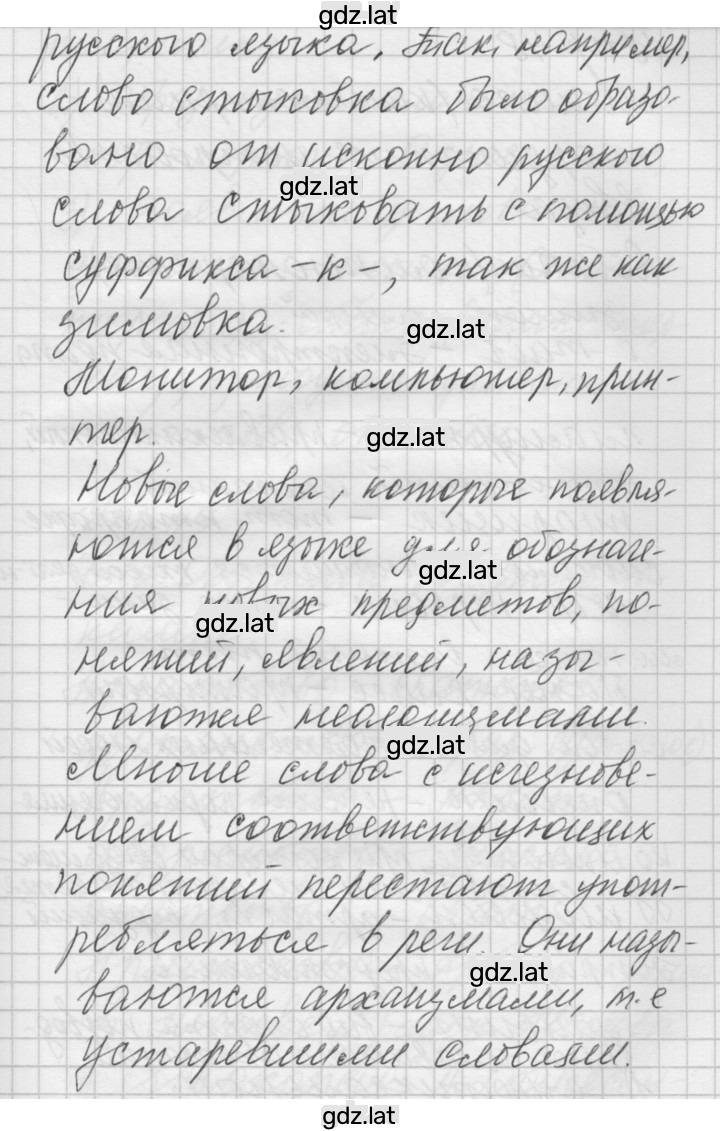 gdz.lat
русского языка. Так, например,
слово стыковка было образо-
вано от исконно русского
gdz.lat
слова стыковать с помощью
суффикса -к-, так же как
зимовка.
gdz.lat
Монитор, компьютер, прин-
тер.
gdz.lat
Новые слова, которые появля-
ются в языке для обозначе-
gdz.lat
ния новых предметов, по-
gdz.lat
нятий, явлений, назы-
ваются неологизмами.
gdz.lat
Многие слова с исчезнове-
нием соответствующих
понятий перестают упот-
ребляться в речи. Они назы-
gdz.lat
ваются архаизмами, т.е
устаревшими словами.
gdz.lat